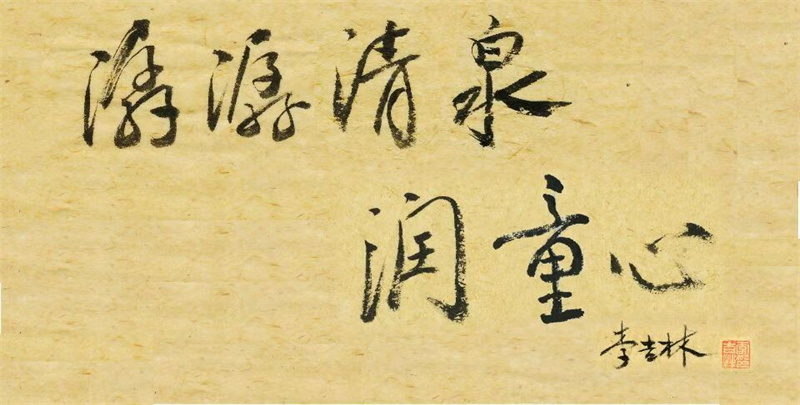 潺潺清泉
润童心
李吉林